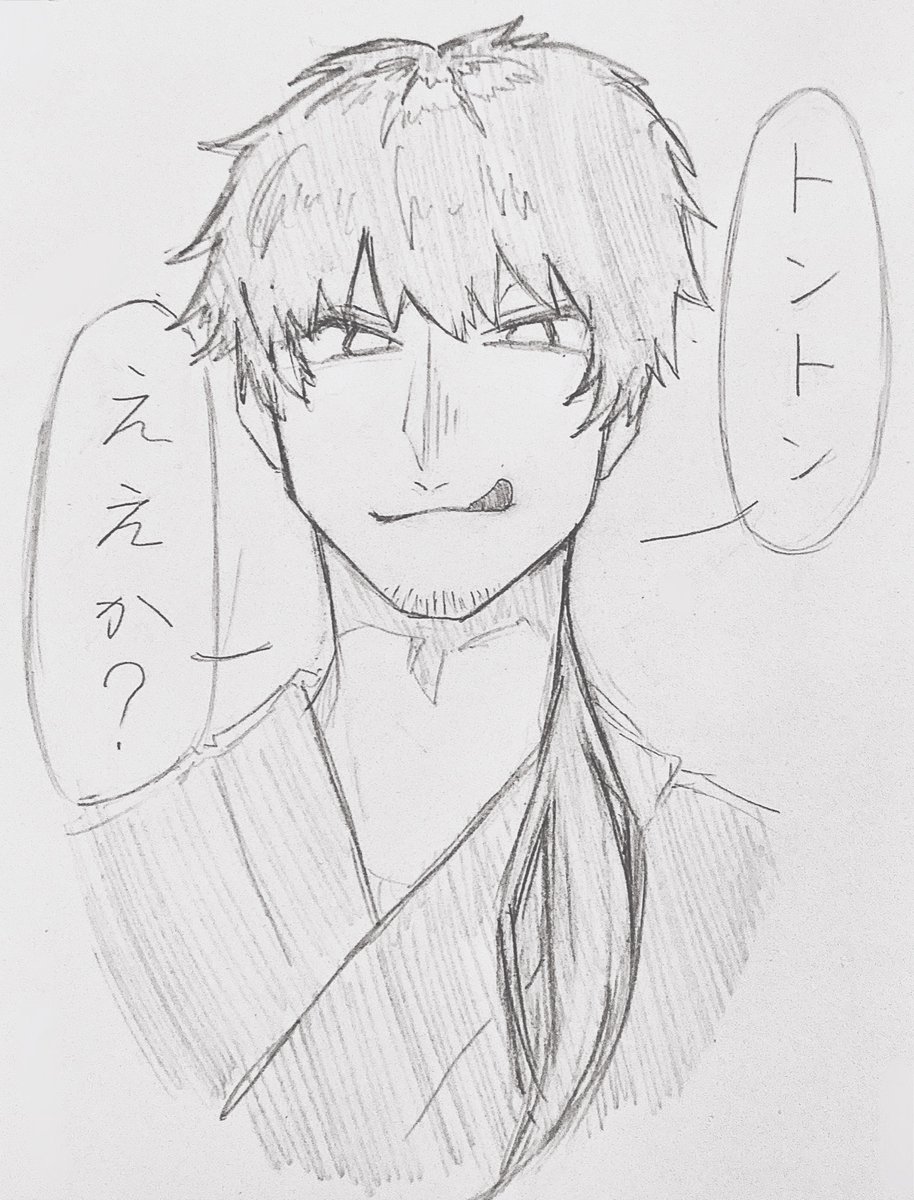 トントン
ええか?